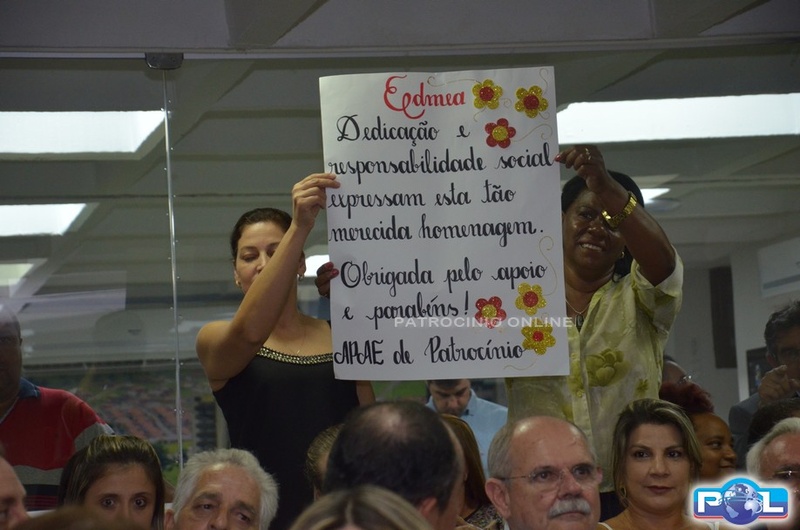 Edmea
Dedicação e
responsabilidade social
expressam esta tão
merecida homenagem.
Obrigada pelo apoio
e parabéns!
PATROCÍNIO ONLINE
APAE de Patrocínio
POL